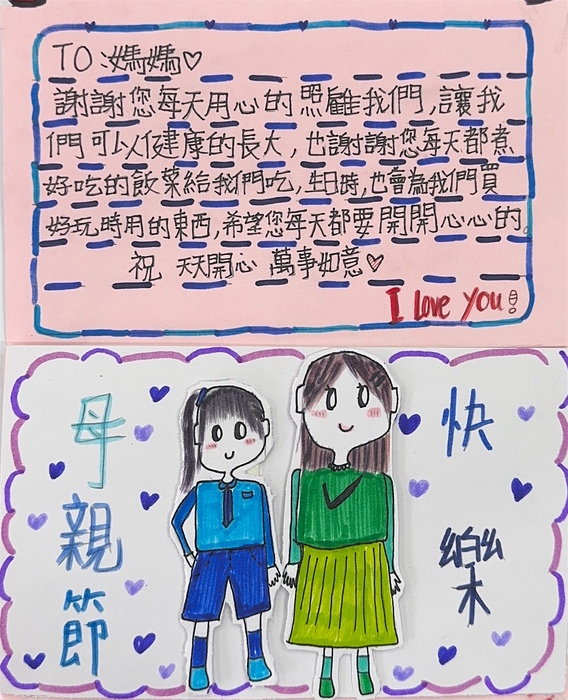 TO:媽媽♡
謝謝您每天用心的照雇我們,讓我
們可以健康的長大,也謝謝您每天都煮
好吃的飯菜給我們吃,生日時,也會為我們買
好玩時用的東西,希望您每天都要開開心心的。
祝 天天開心 萬事如意♡
I love you!
母親節
快樂